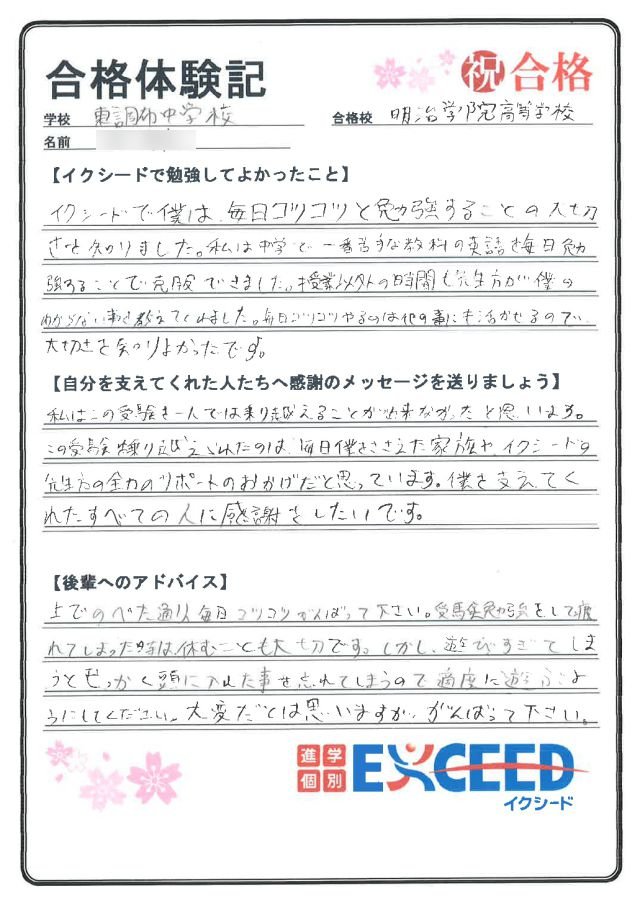 合格体験記
祝 合格
学校 東調布中学校
合格校 明治学院高等学校
名前
【イクシードで勉強してよかったこと】
イクシードで僕は、毎日コツコツと勉強することの大切
さを知りました。私は中学で一番苦手な教科の英語を毎日勉
強することで克服できました。授業以外の時間も先生方が僕の
わからない事を教えてくれました。毎日コツコツやるのは他の事にも活かせるので、
大切さを知りよかったです。
【自分を支えてくれた人たちへ感謝のメッセージを送りましょう】
私はこの受験を一人では乗り越えることが出来なかったと思います。
この受験を乗り越えられたのは、毎日僕をささえた家族や、イクシードの
先生方の全力のサポートのおかげだと思っています。僕を支えてく
れたすべての人に感謝をしたいです。
【後輩へのアドバイス】
上でのべた通り毎日コツコツがんばって下さい。受験勉強をして疲
れてしまった時は休むことも大切です。しかし、遊びすぎてしま
うとせっかく頭に入れた事を忘れてしまうので適度に遊ぶよ
うにしてください。大変だとは思いますが、がんばって下さい。
進学
個別
EXCEED
イクシード